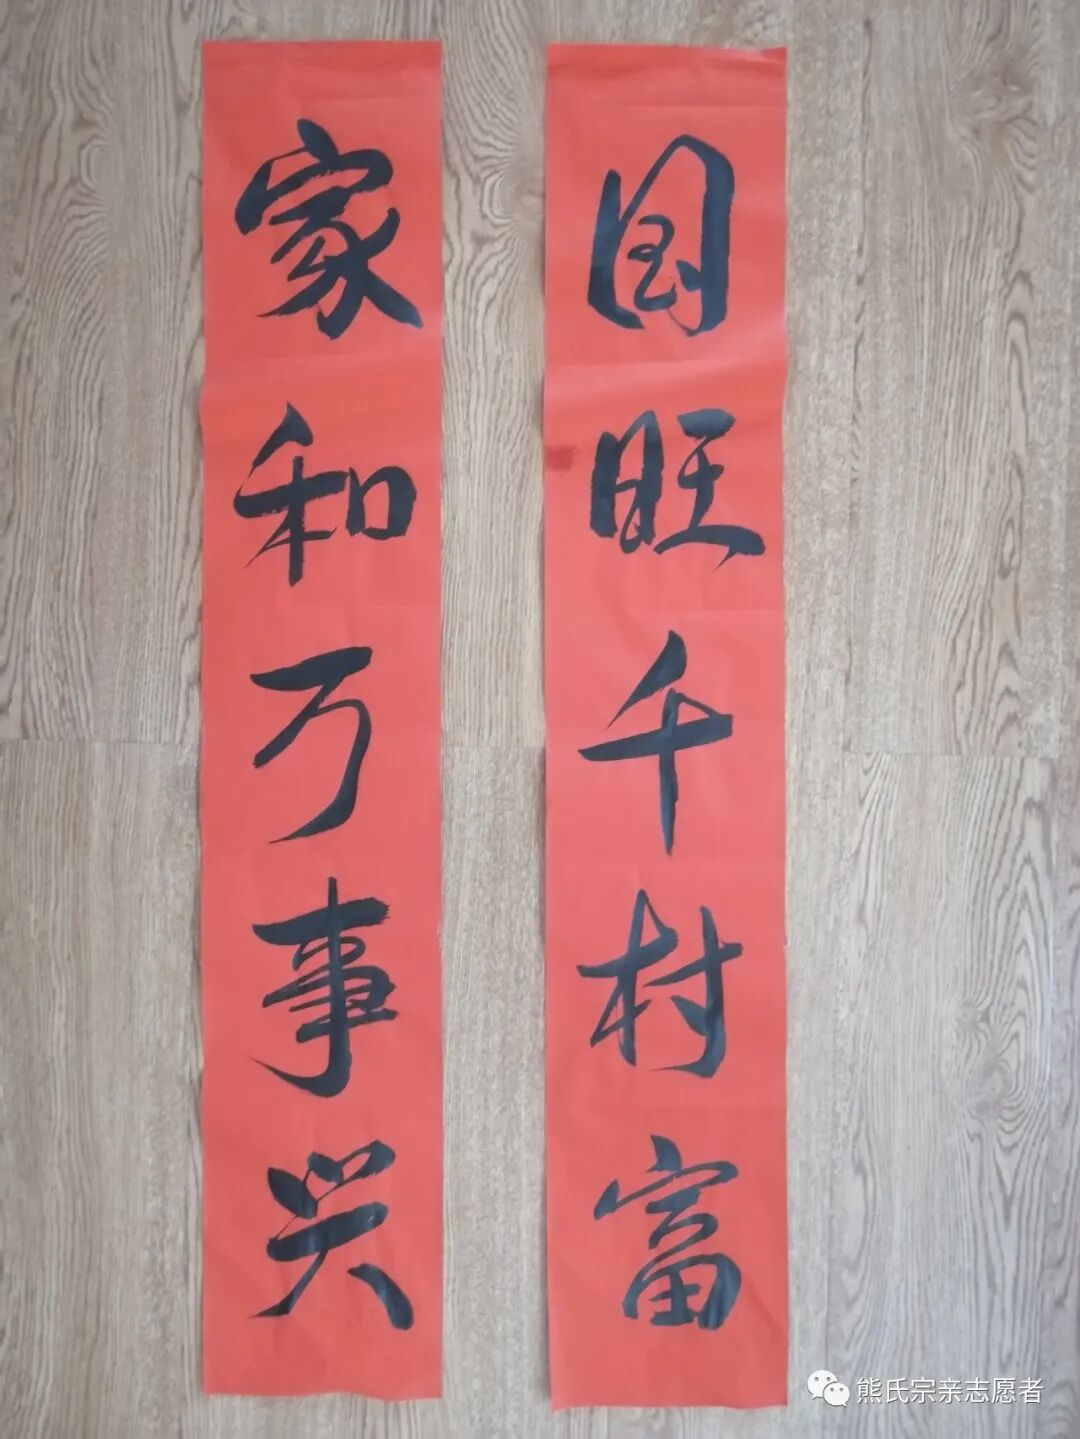 国旺千村富
家和万事兴
熊氏宗亲志愿者